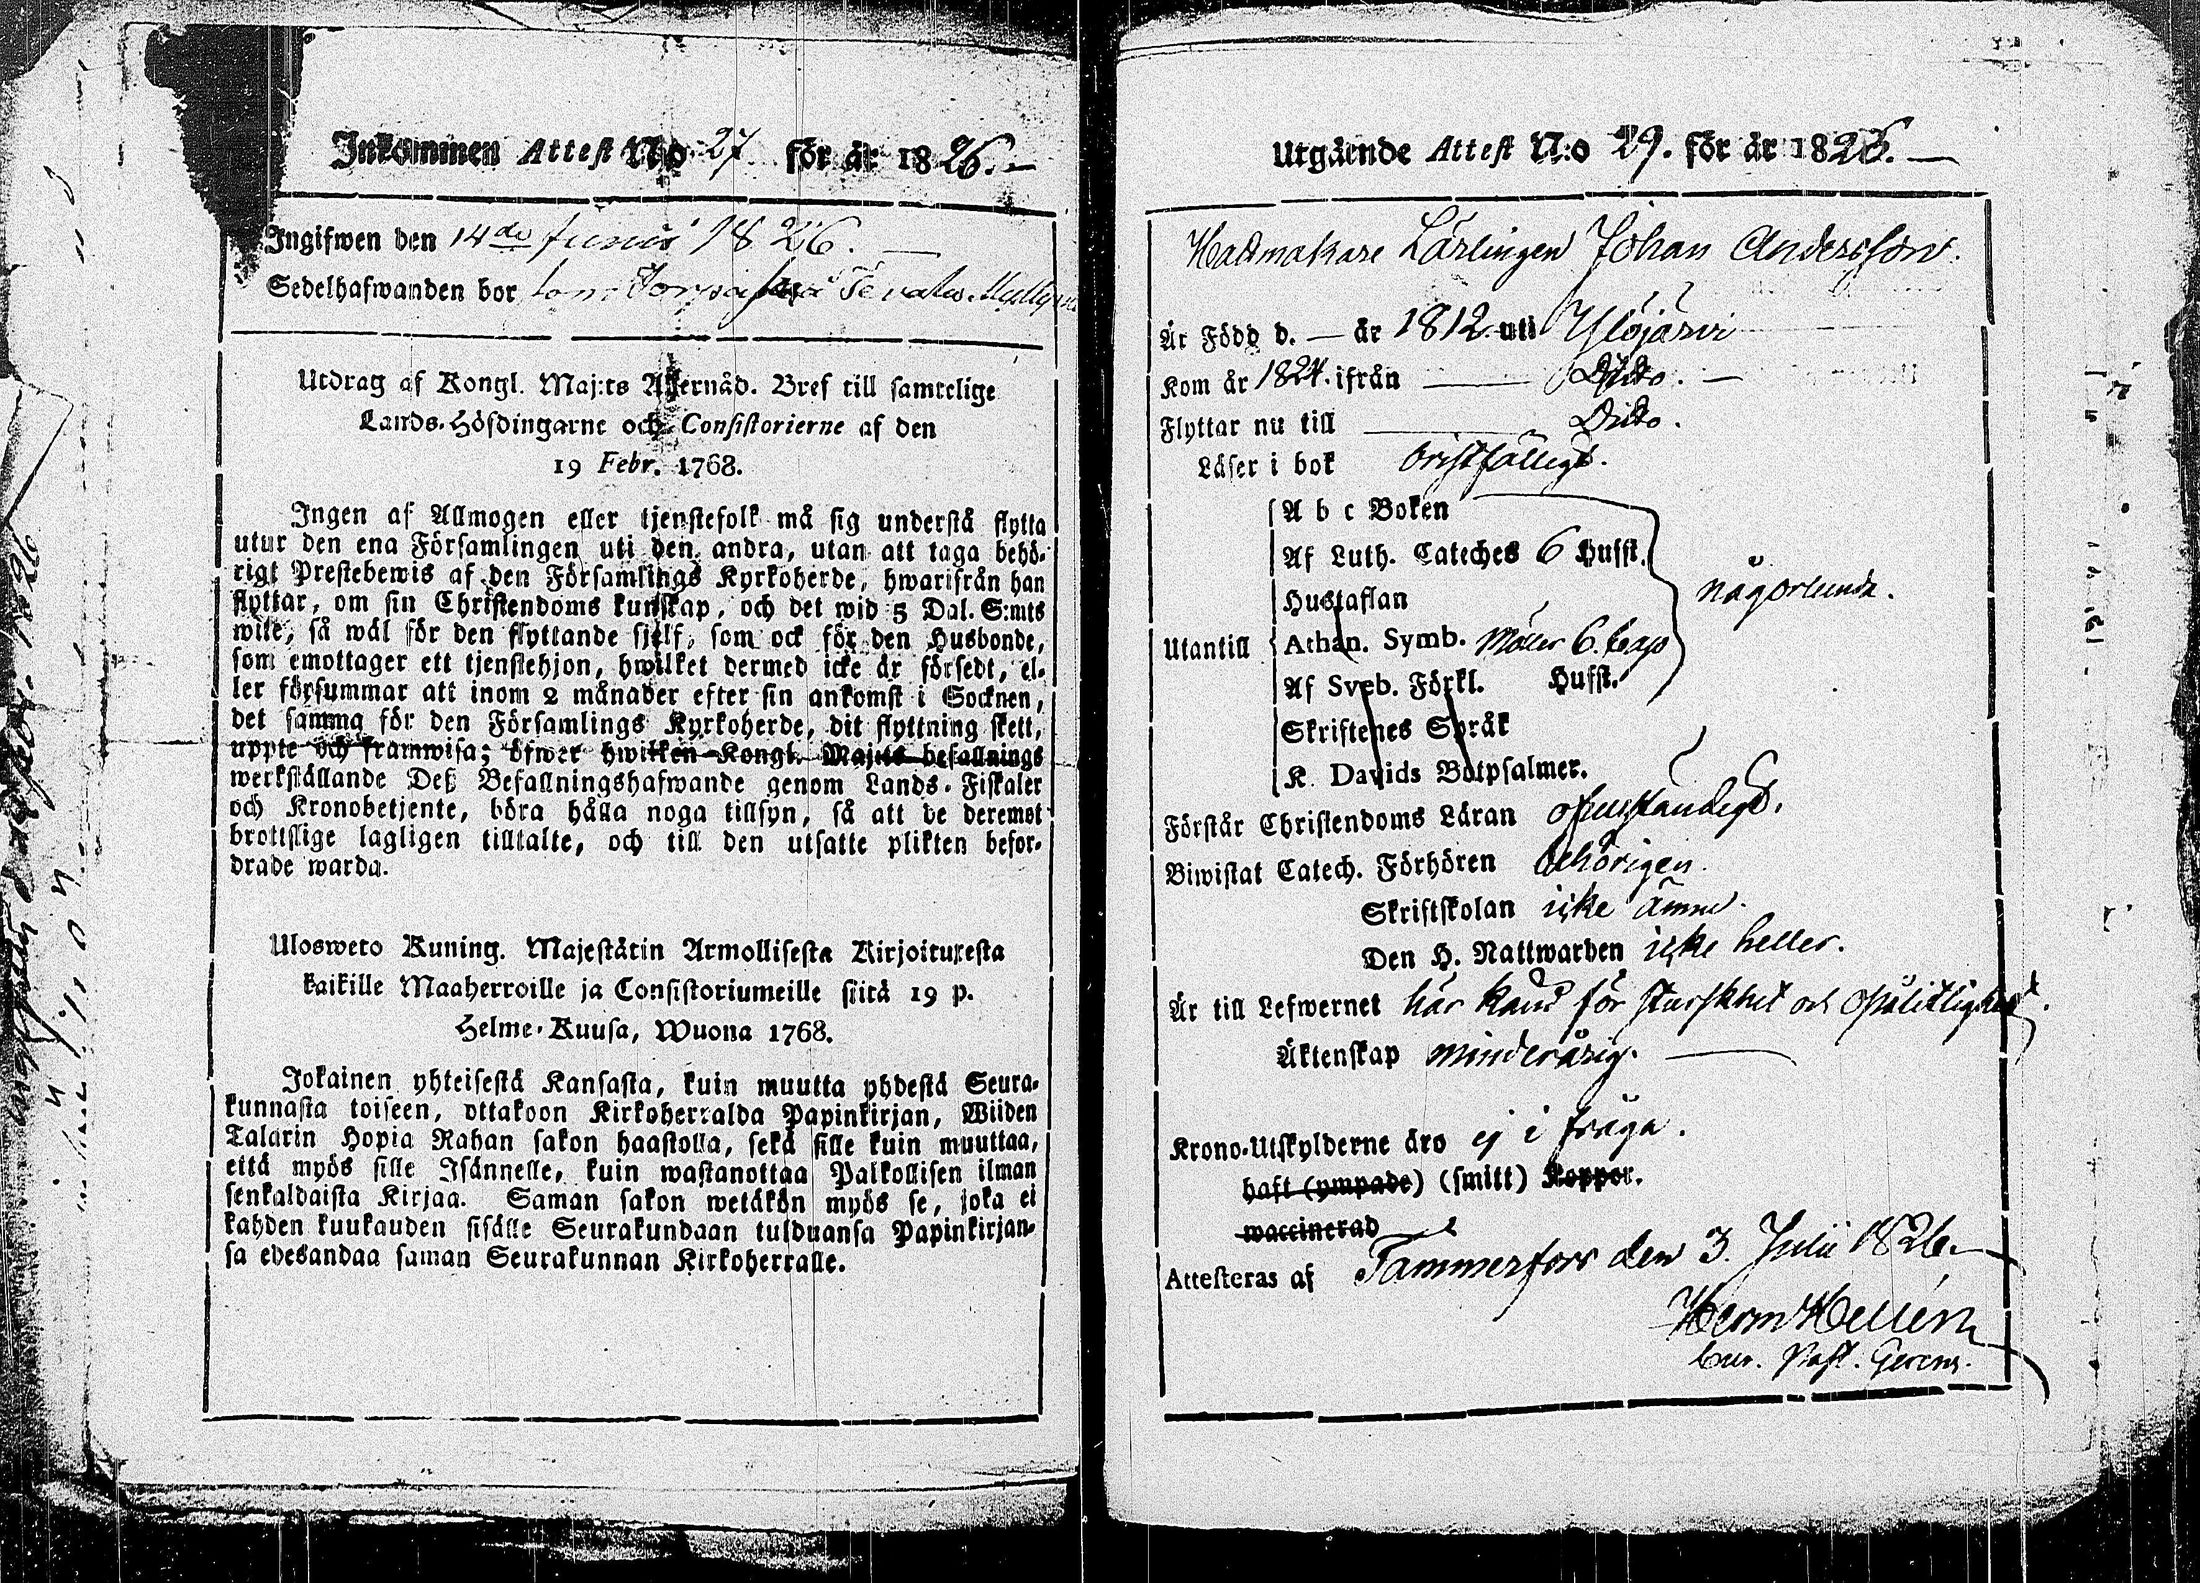 Inkommen Attest No 27 för år 1826.
Ingifwen den 14de Junii 1826.
Sedelhafwanden bor som
Utdrag af Kongl. Maj:ts Allernåd. Bref till samtelige
Lands-Höfdingarne och Consistorierne af den
19 Febr. 1768.
Ingen af Allmogen eller tjenstefolk må sig understå flytta
utur den ena Församlingen uti den andra, utan att taga behö-
rigt Prestebewis af den Församlings Kyrkoherde, hwarifrån han
flyttar, om sin Christendoms kunskap, och det wid 5 Dal. S:mts
wite, så wäl för den flyttande sjelf, som ock för den Husbonde,
som emottager ett tjenstehjon, hwilket dermed icke är försedt, el-
ler försummar att inom 2 månader efter sin ankomst i Socknen,
det samma för den Församlings Kyrkoherde, dit flyttning skett,
uppte och framwisa; öfwer hwilken Kongl. Maj:ts befallnings
werkställande Deß Befallningshafwande genom Lands-Fiskaler
och Kronobetjente, böra hålla noga tillsyn, så att de deremot
brottslige lagligen tilltalte, och till den utsatte plikten befor-
drade warda.
Ulosweto Kuning. Majestätin Armollisesta Kirjoituxesta
kaikille Maaherroille ja Consistoriumeille siitä 19 p.
Helme-Kuusa, Wuona 1768.
Jokainen yhteisestä Kansasta, kuin muutta yhdestä Seura-
kunnasta toiseen, ottakoon Kirkoherralda Papinkirjan, Wiiden
Talarin Hopia Rahan sakon haastolla, sekä sille kuin muuttaa,
että myös sille Isännelle, kuin wastanottaa Palkollisen ilman
senkaldaista Kirjaa. Saman sakon wetäkön myös se, joka ei
kahden kuukauden sisälle Seurakundaan tulduansa Papinkirjan-
sa edesandaa saman Seurakunnan Kirkoherralle.
Utgående Attest N:o 29. för år 1826.
Hattmakare Lärlingen Johan Andersson.
Är Född d. — år 1812. uti Ylöjärvi
Kom år 1824. ifrån — Ditto.
Flyttar nu till — Ditto.
Läser i bok bristfälligt.
A b c Boken
Af Luth. Cateches 6 Hufst.
Hustaflan någorlunda.
Utantill Athan. Symb. 6. cap
Af Sveb. Förkl. Hufst.
Skriftenes Språk
K. Davids Botpsalmer.
Förstår Christendoms Läran ofullständigt.
Biwistat Catech. Förhören behörigen.
Skriftskolan icke ännu.
Den H. Nattwarden icke heller.
Är till Lefwernet här känd för sturskhet och opålitlighet.
Äktenskap minderårig.
Krono-Utskylderne äro ej i fråga.
haft (ympade) (smitt) Koppor.
waccinerad
Attesteras af Tammerfors den 3. Julii 1826.
Herm Hellén
Past. Gerens.